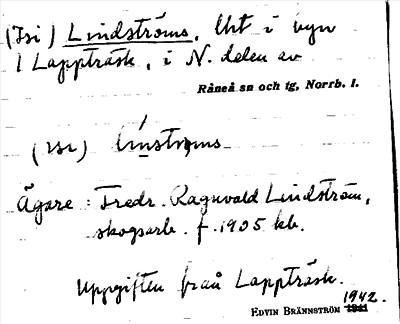 (Isi) Lindströms. Uht i byn
1 Lappträsk, i N. delen av
Råneå sn och tg, Norrb. l.
(ısı) línströms
Ägare: Fredr. Ragnvald Lindström,
skogsarb. f. 1905 kb.
Uppgiften från Lappträsk.
1942.
EDVIN BRÄNNSTRÖM 1941